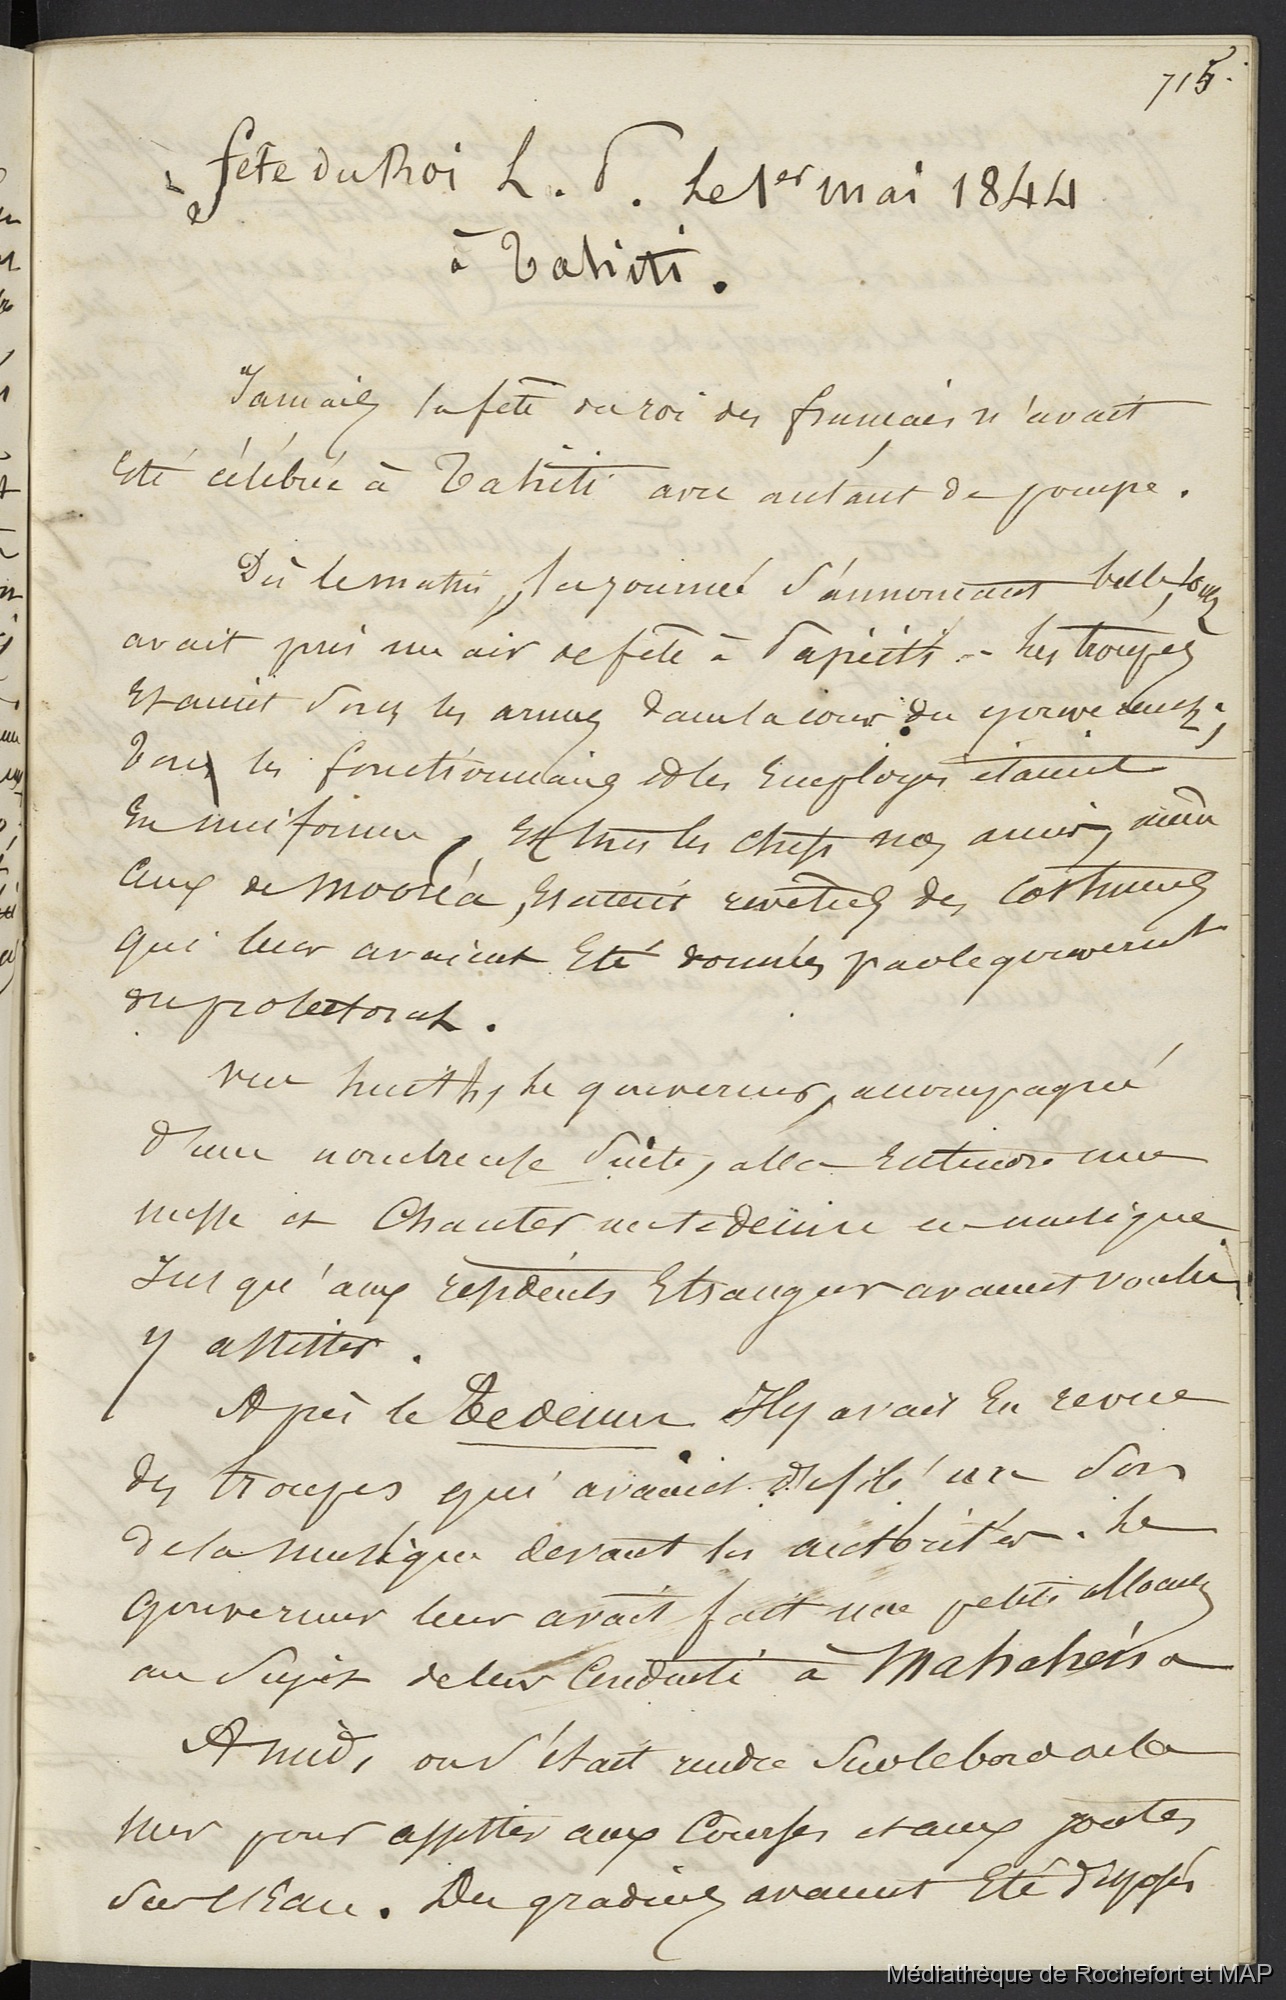 715.
fête du Roi L. P. Le 1er mai 1844
à Tahiti.
Jamais la fête du roi des français n'avait
Eté célébrée à Tahiti avec autant de pompe.
Dès le matin, la journée s'annoncant belle, tout
avait pris un air de fête à Papeïti. - Les troupes
Etaient sous les armes dans la cour du gouvernemt;
Tous les fonctionnaires et les Employés étaient
En uniforme, Et tous les chefs nos amis, même
Ceux de Mooréa, Etaient revêtus des Costumes
qui leur avaient Eté donnés par le gouvernemt
du protectorat.
vers huit h, le gouverneur, accompagné
d'une nombreuse Suite, alla Entendre une
messe et Chanter un te deum en musique.
Jusqu'aux résidents Etrangers avaient voulu
y assister.
Après le Te deum Il y avait Eu revue
des troupes qui avaient défilé au Son
de la musique devant les autorités. Le
gouverneur leur avait fait une petite alloc
au Sujet de leur Conduite à Mahahéna
A midi, on S'était rendu Sur le bord de la
mer pour assister aux Courses et aux joutes
Sur l'Eau. Des gradins avaient Eté disposés
Médiathèque de Rochefort et MAP